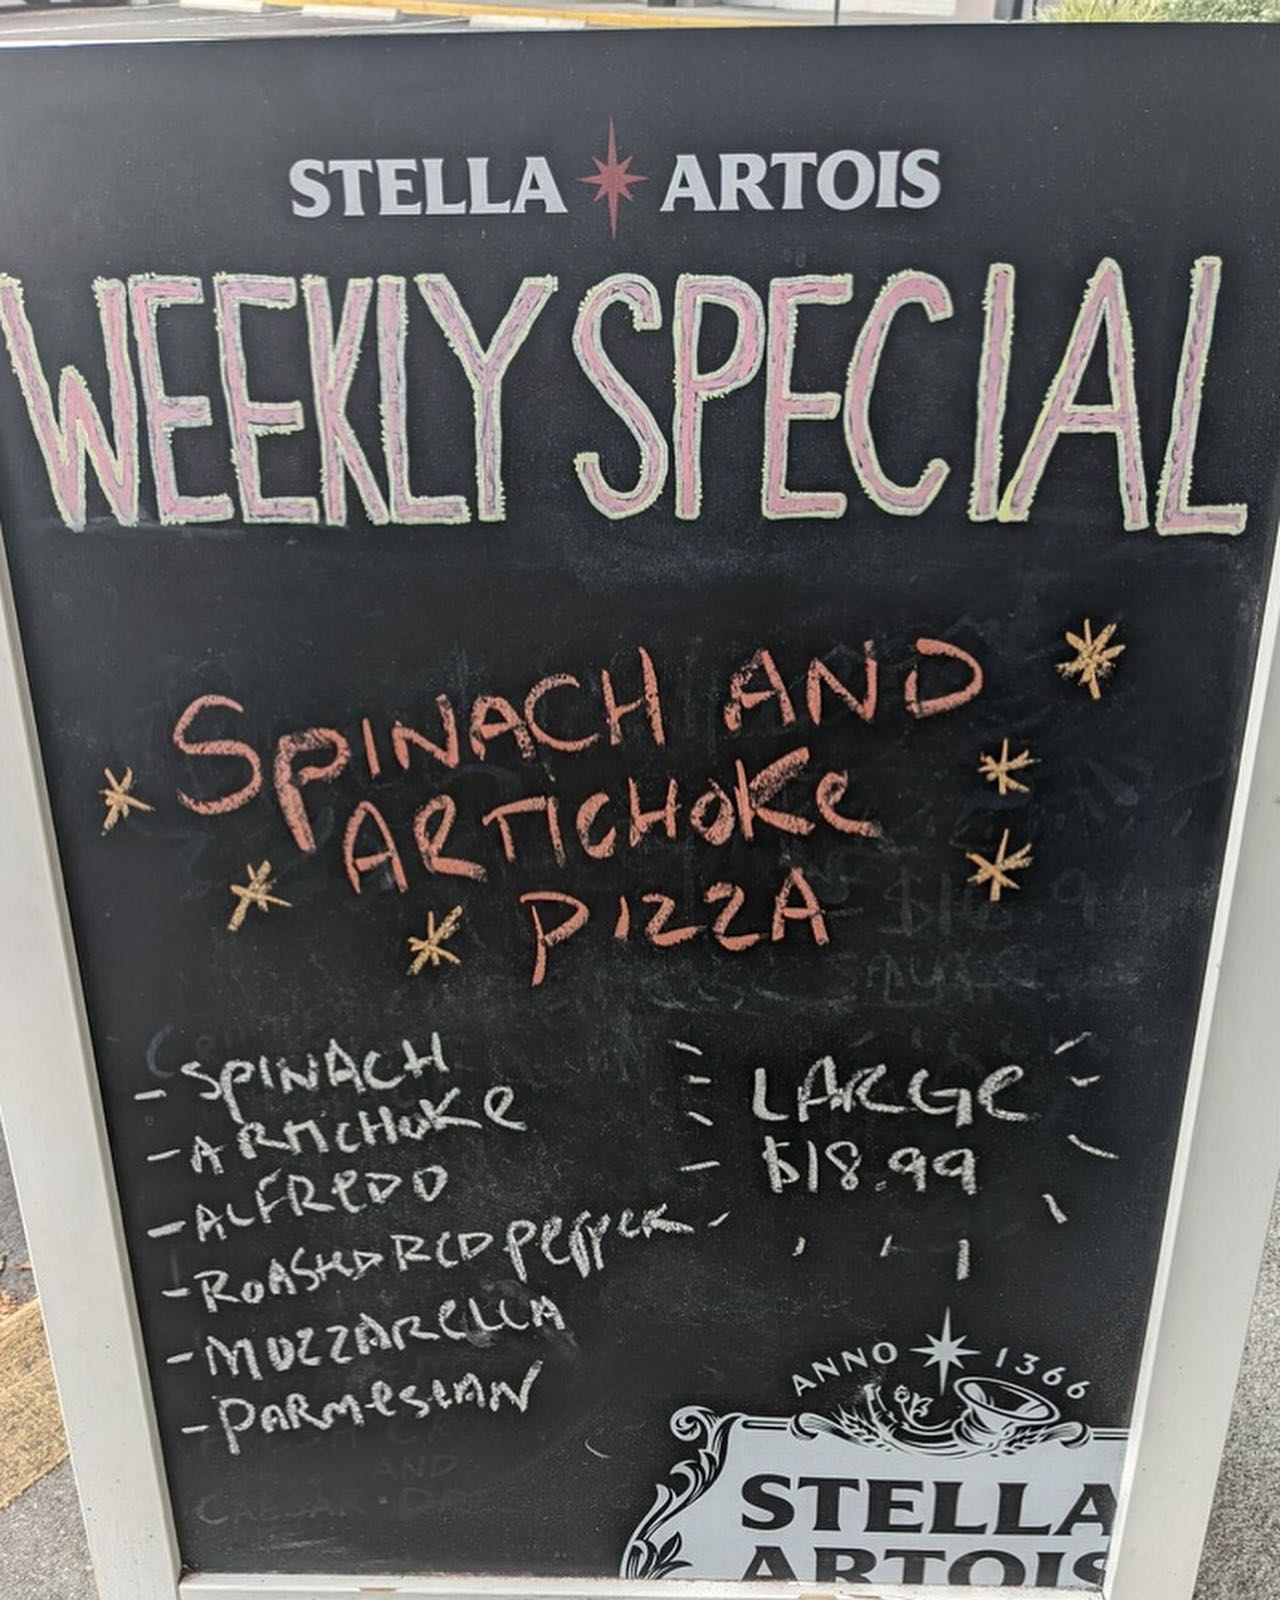 STELLA ARTOIS
WEEKLY SPECIAL
SPINACH AND
ARTICHOKe
PIZZA
- SPINACH
- ARTICHOKe
- ALFReDO
- ROASTeD ReD PePPeR
- MOZZAReLLA
- PARMeSIAN
LARGe
$18.99
AND
CAESAR
ANNO 1366
STELLA
ARTOIS